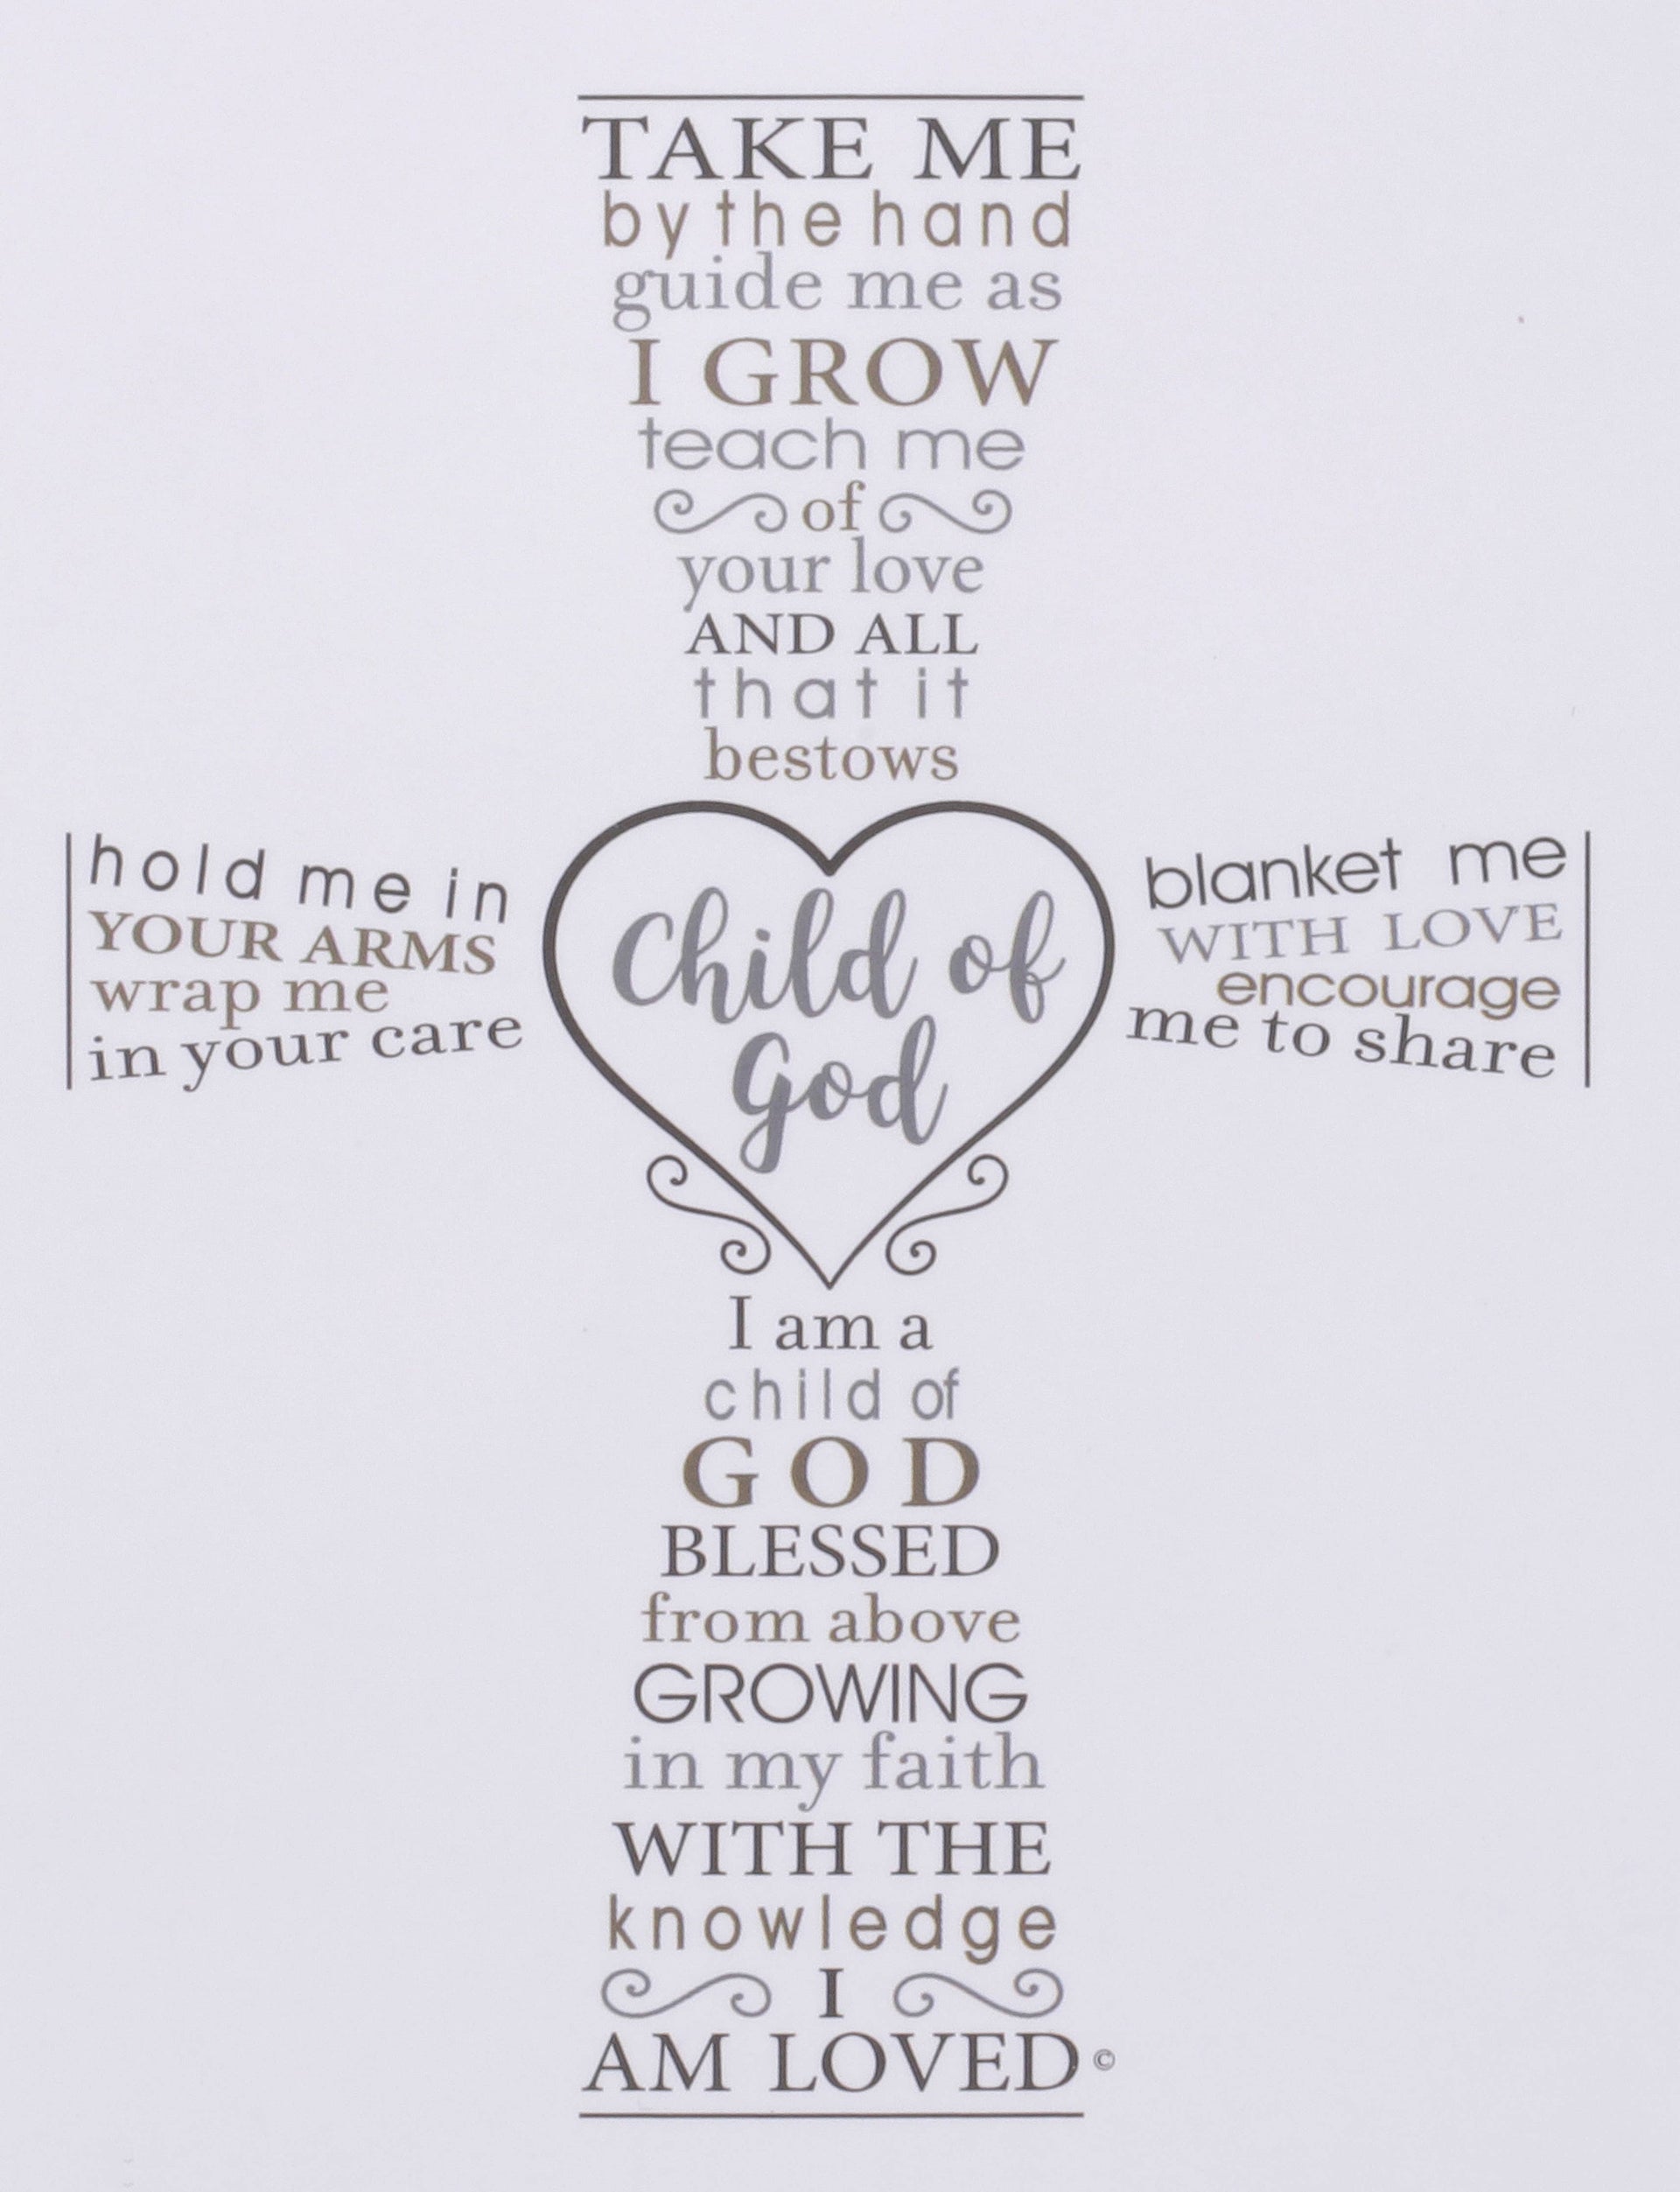 TAKE ME
by the hand
guide me as
I GROW
teach me
of
your love
AND ALL
that it
bestows
hold me in
YOUR ARMS
wrap me
in your care
Child of
God
blanket me
WITH LOVE
encourage
me to share
I am a
child of
GOD
BLESSED
from above
GROWING
in my faith
WITH THE
knowledge
I
AM LOVED©